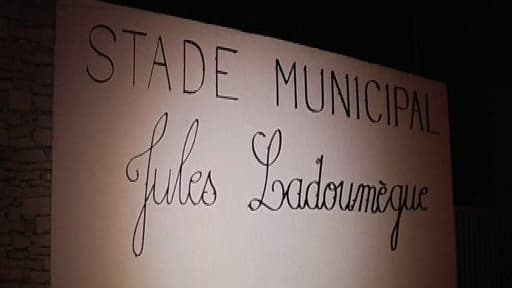 STADE MUNICIPAL
Jules Ladoumègue